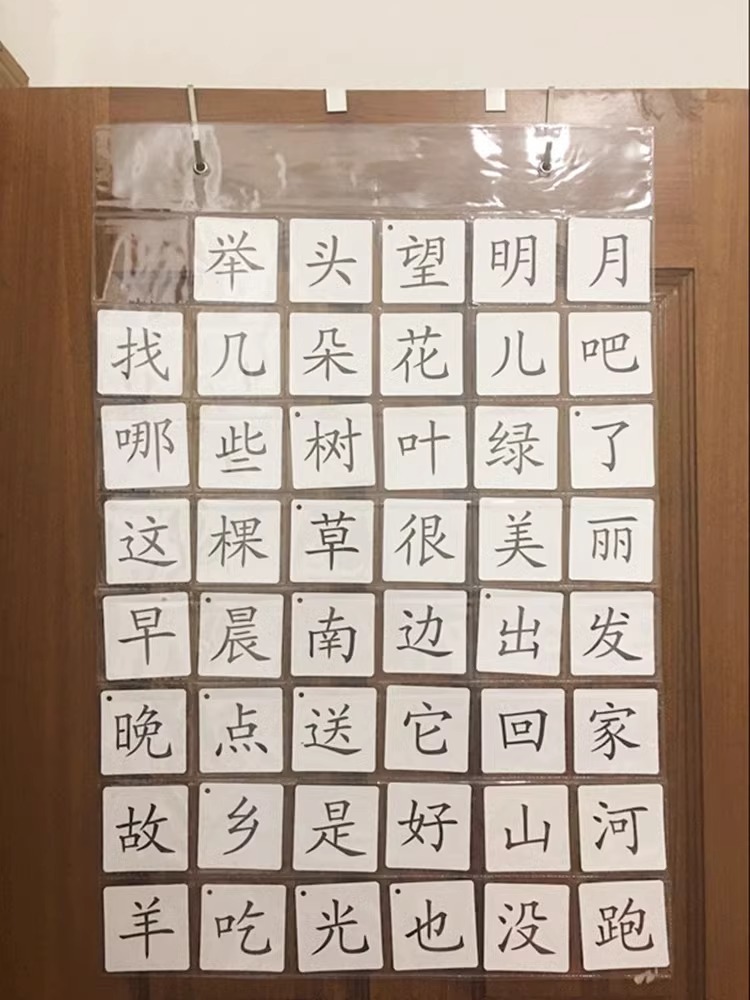 举头望明月
找几朵花儿吧
哪些树叶绿了
这棵草很美丽
早晨南边出发
晚点送它回家
故乡是好山河
羊吃光也没跑